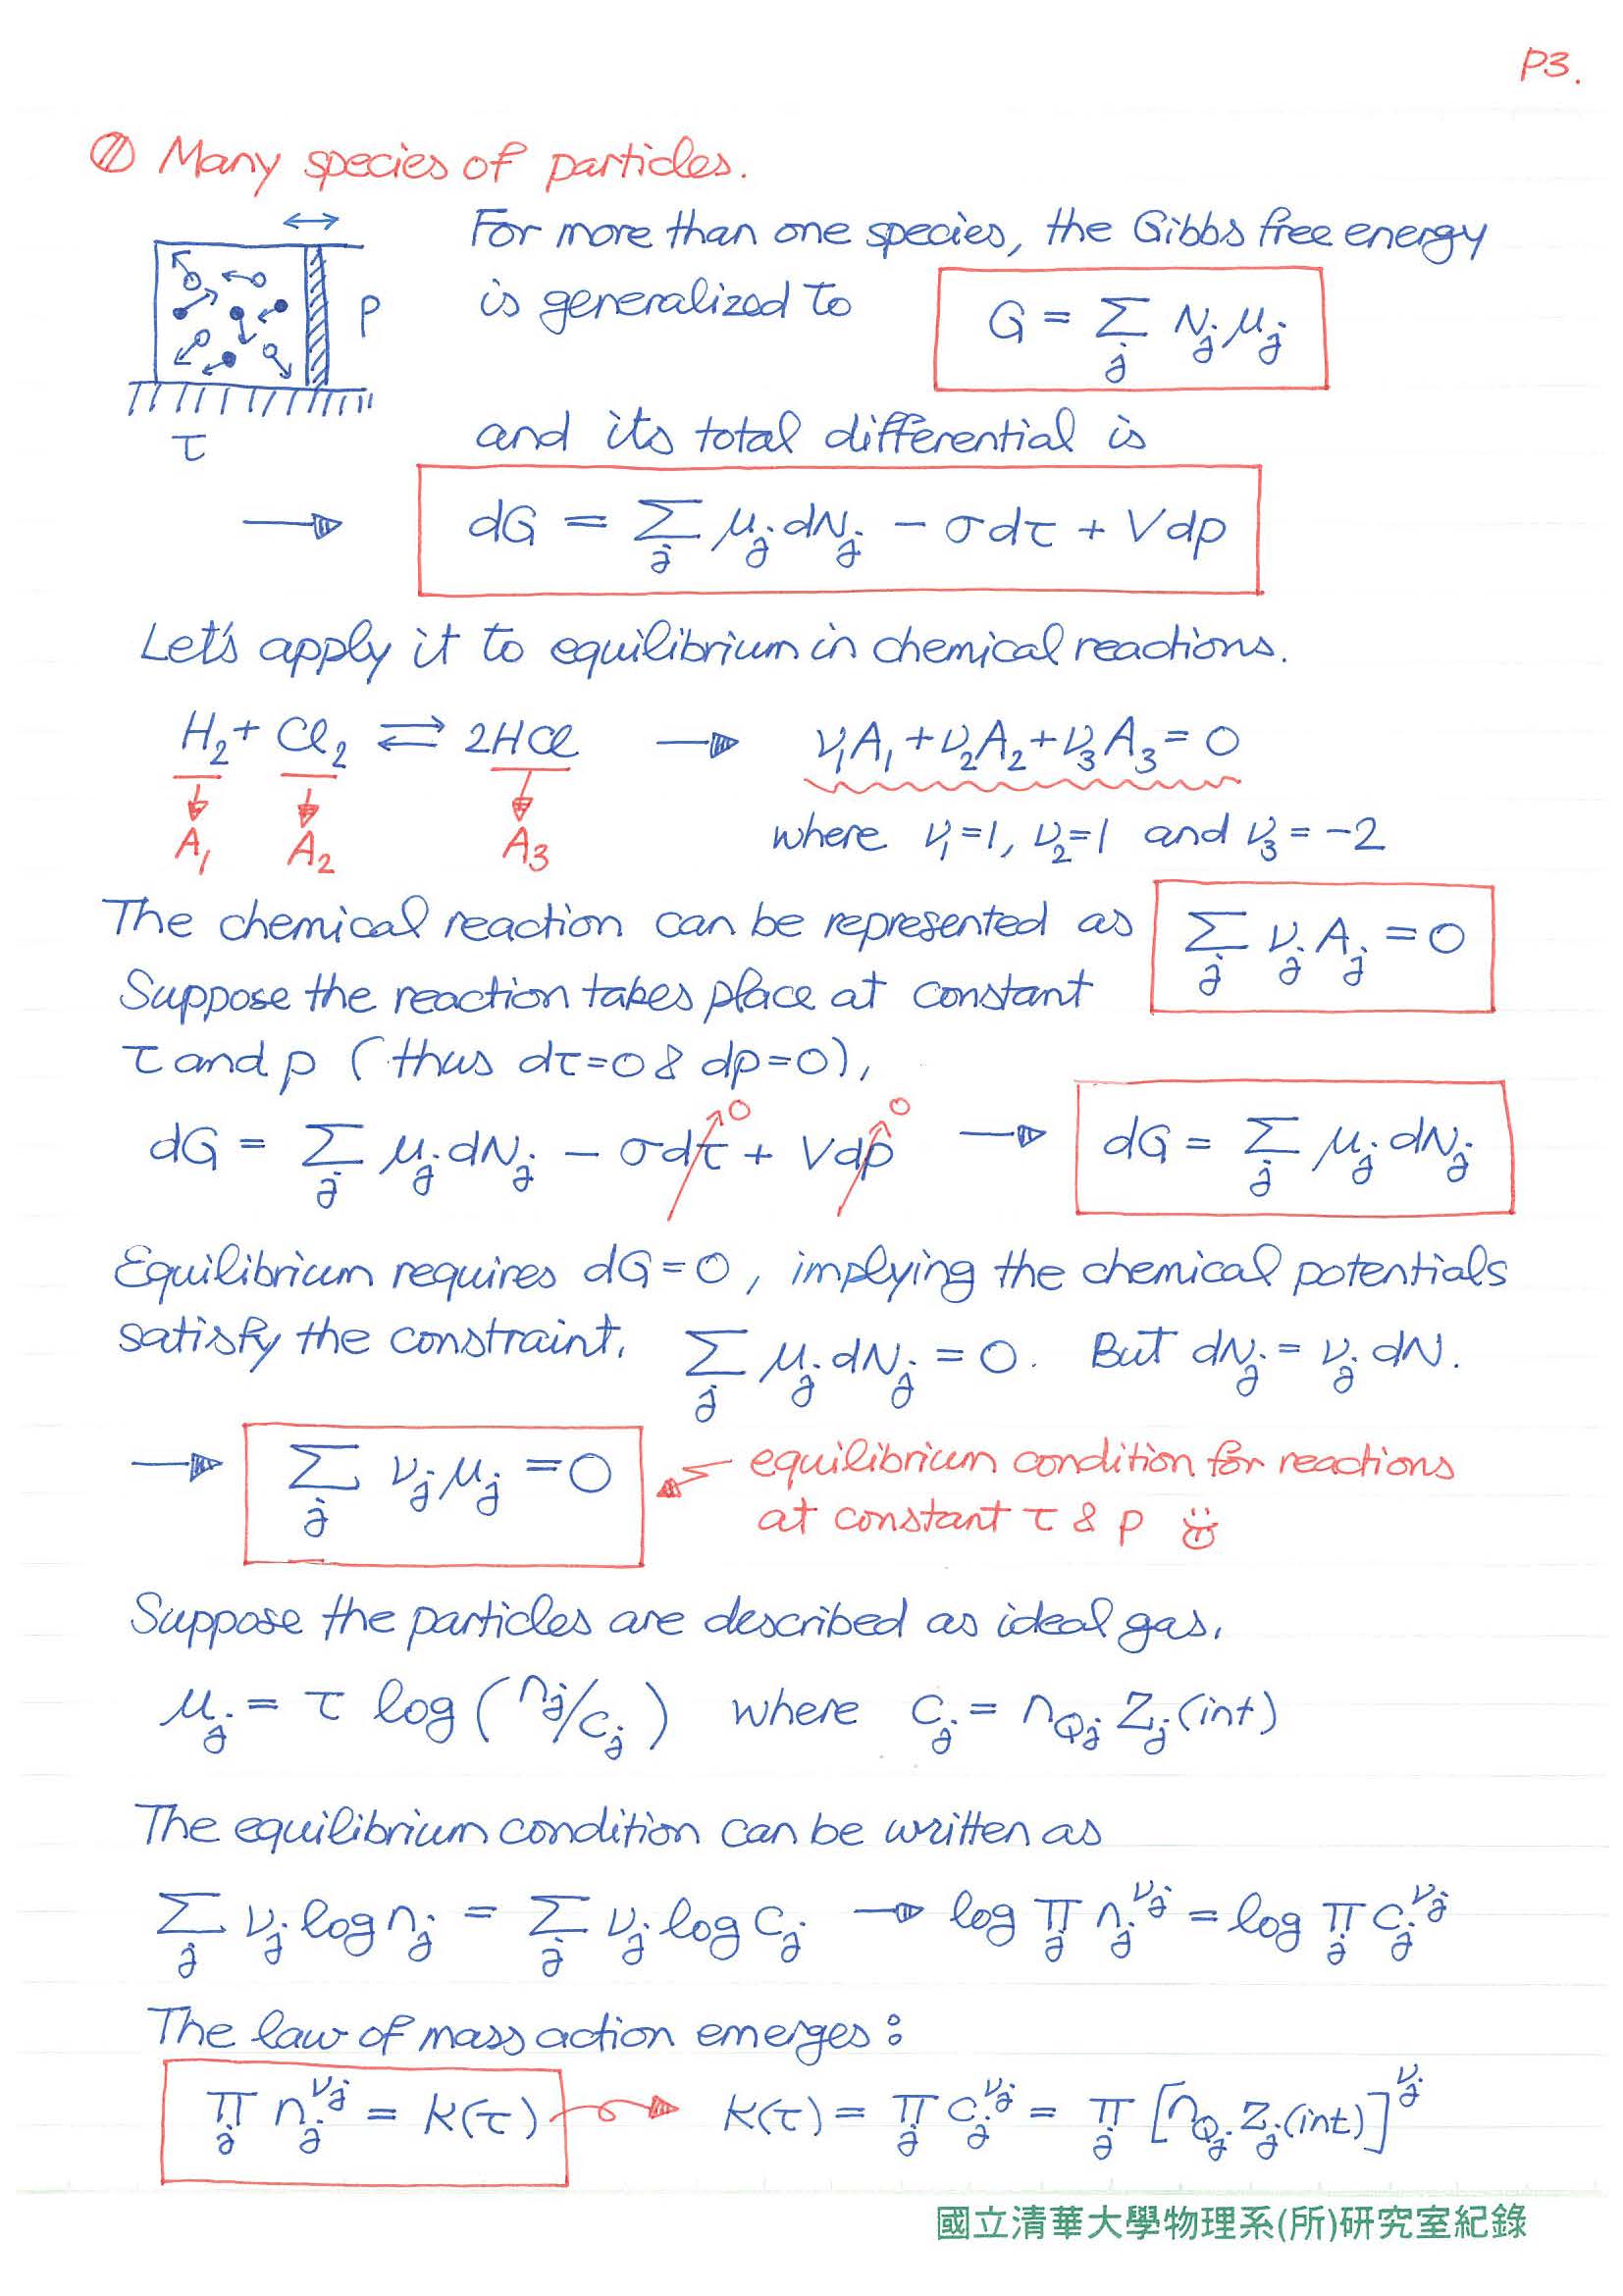 P3.
Many species of particles.
For more than one species, the Gibbs free energy
is generalized to G = ∑_j N_j μ_j
p
and its total differential is
τ
dG = ∑_j μ_j dN_j − σdτ + Vdp
Let's apply it to equilibrium in chemical reactions.
H₂ + Cl₂ ⇌ 2HCl → ν₁A₁ + ν₂A₂ + ν₃A₃ = 0
A₁ A₂ A₃ where ν₁=1, ν₂=1 and ν₃=−2
The chemical reaction can be represented as ∑_j ν_j A_j = 0
Suppose the reaction takes place at constant
τ and p (thus dτ=0 & dp=0),
dG = ∑_j μ_j dN_j − σdτ⁰ + Vdp⁰ → dG = ∑_j μ_j dN_j
Equilibrium requires dG=0, implying the chemical potentials
satisfy the constraint, ∑_j μ_j dN_j = 0. But dN_j = ν_j dN.
→ ∑_j ν_j μ_j = 0 equilibrium condition for reactions
at constant τ & p
Suppose the particles are described as ideal gas,
μ_j = τ log(n_j/c_j) where c_j = n_Qj Z_j(int)
The equilibrium condition can be written as
∑_j ν_j log n_j = ∑_j ν_j log c_j → log ∏_j n_j^ν_j = log ∏_j c_j^ν_j
The law of mass action emerges:
∏_j n_j^ν_j = K(τ) → K(τ) = ∏_j c_j^ν_j = ∏_j [n_Qj Z_j(int)]^ν_j
國立清華大學物理系(所)研究室紀錄